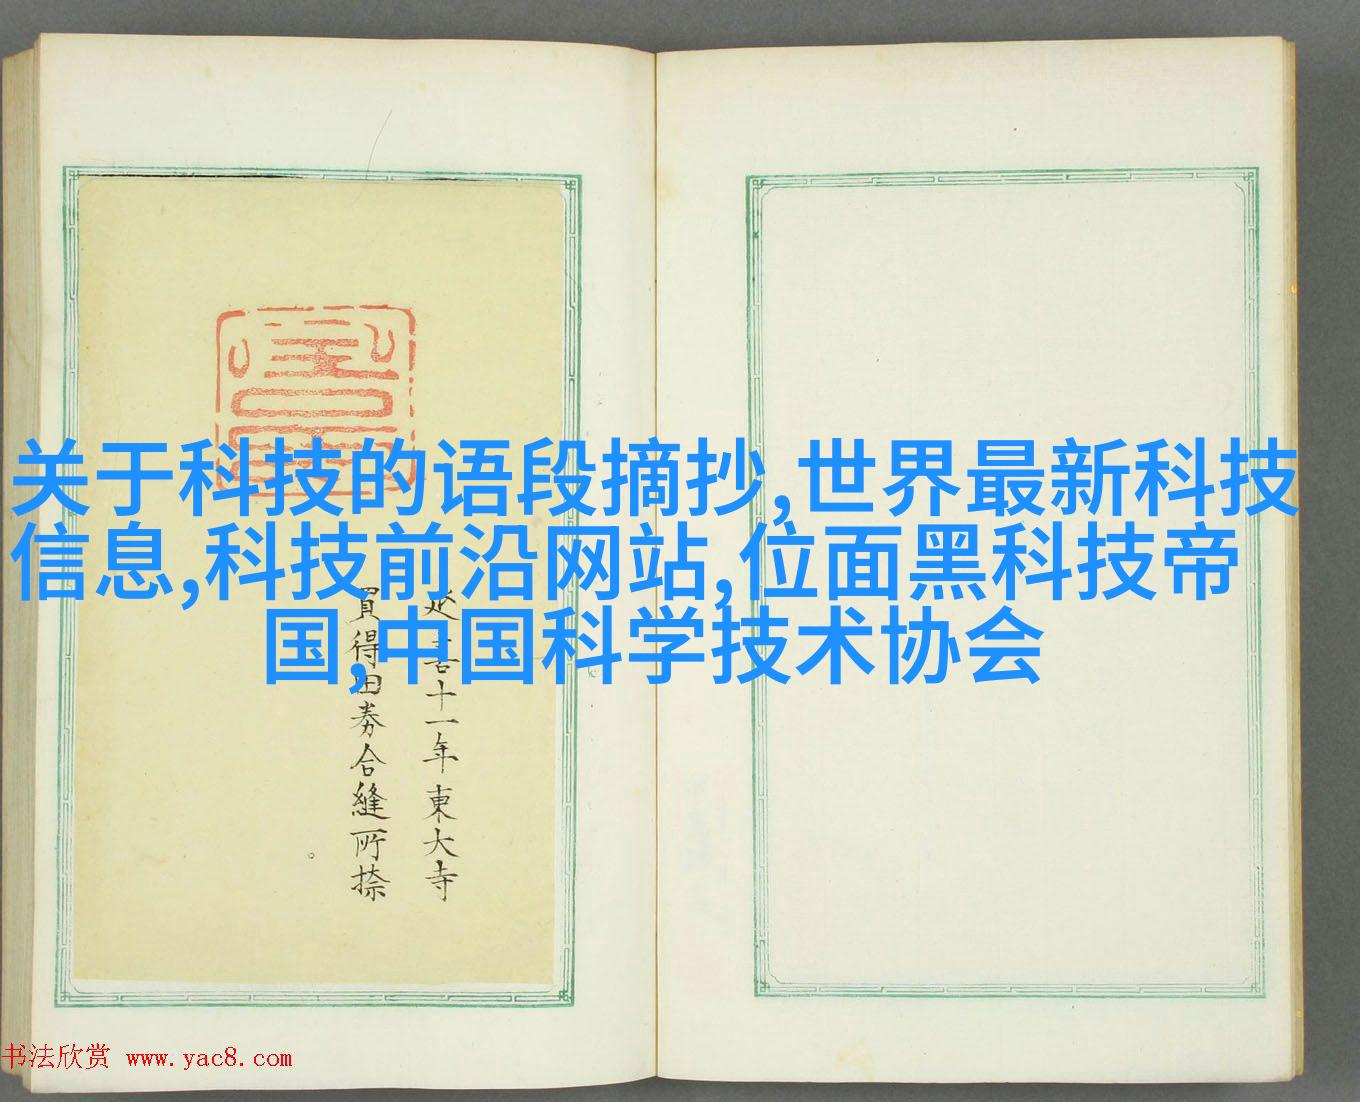 关于科技的语段摘抄,世界最新科技
信息,科技前沿网站,位面黑科技帝
国,中国科学技术协会
延喜十一年東大寺
買得田券合縫所捺
书法欣赏 www.yac8.com